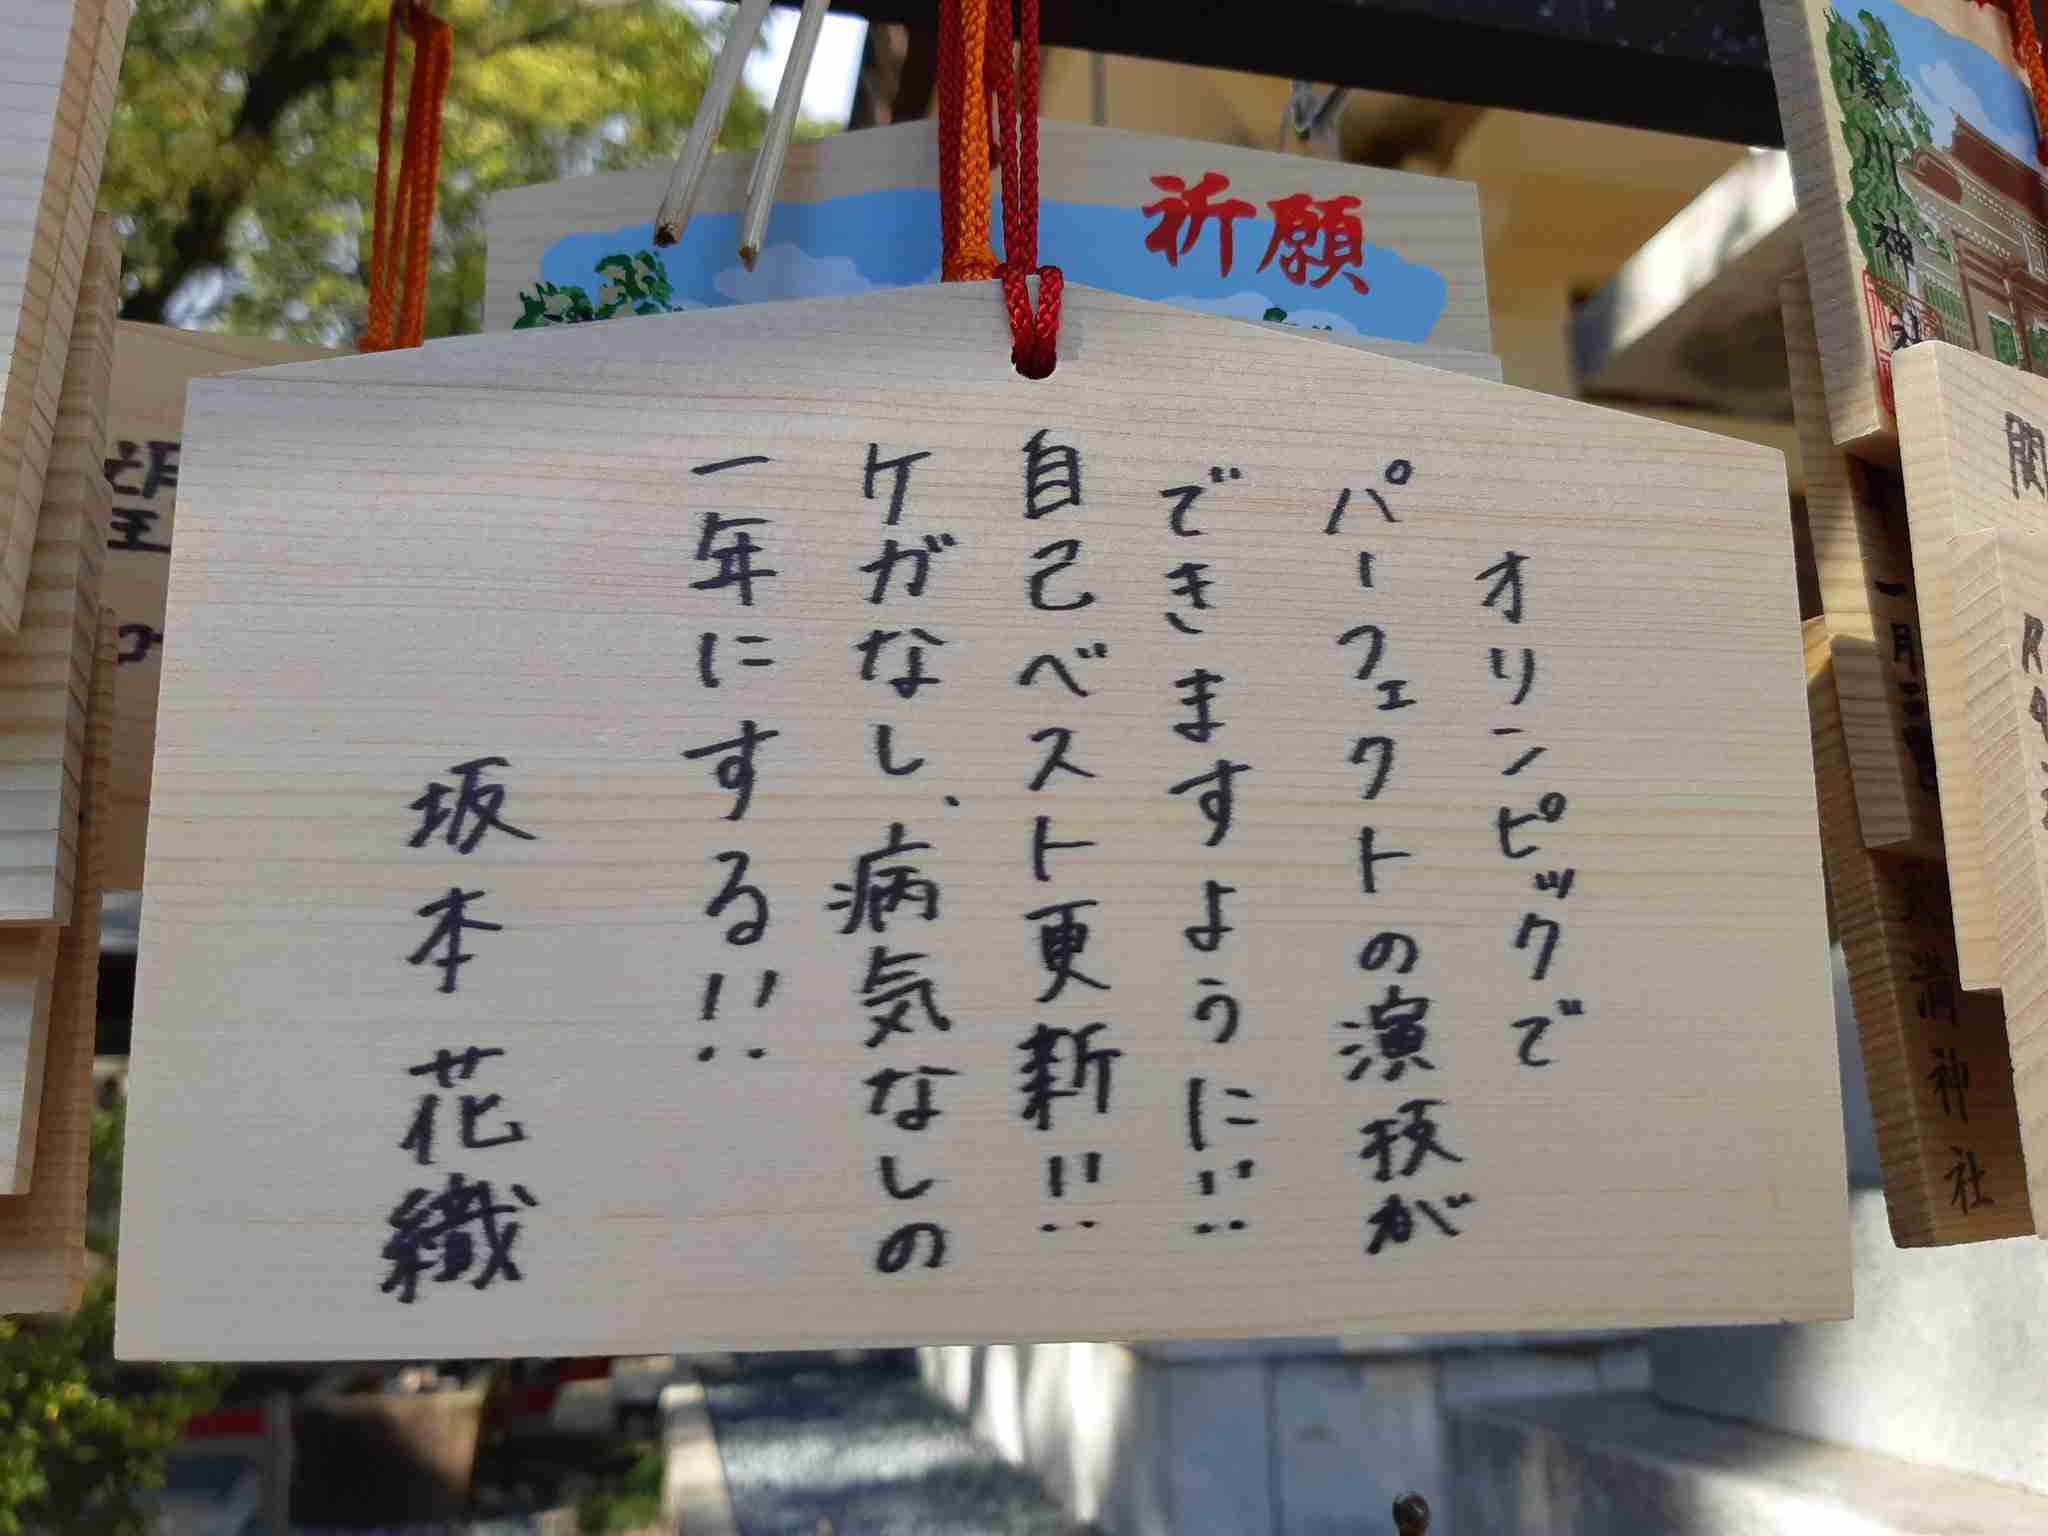 オリンピックで
パーフェクトの演技が
できますように!!
自己ベスト更新!!
ケガなし、病気なしの
一年にする!!
坂本花織
祈願
湊川神社
望
関
天満神社